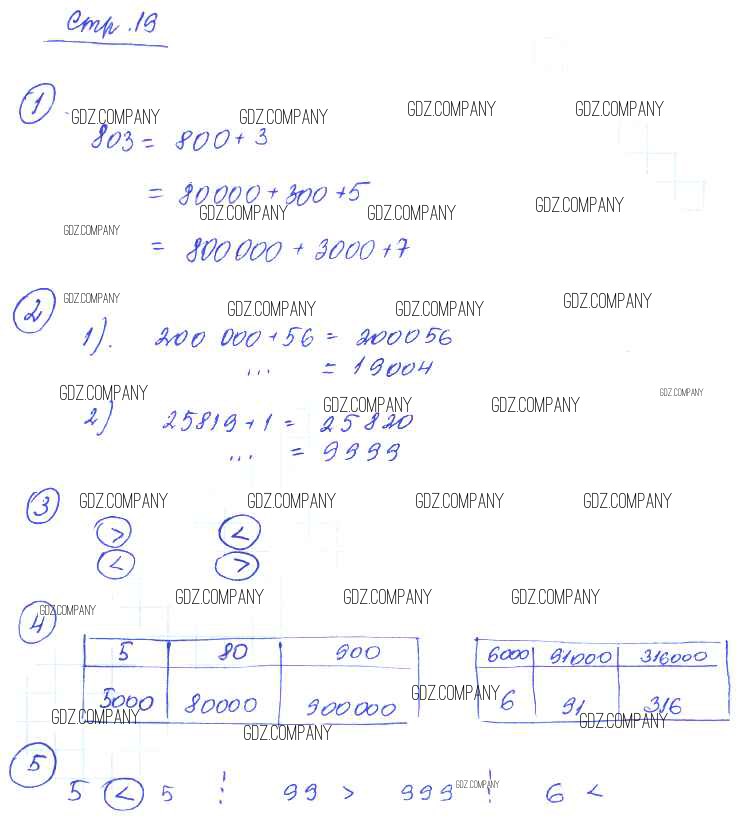 Стр. 19
1 GDZ.COMPANY GDZ.COMPANY GDZ.COMPANY GDZ.COMPANY
803 = 800 + 3
= 80000 + 300 + 5
GDZ.COMPANY GDZ.COMPANY GDZ.COMPANY
GDZ.COMPANY
= 800 000 + 3000 + 7
2 GDZ.COMPANY GDZ.COMPANY GDZ.COMPANY GDZ.COMPANY
1). 200 000 + 56 = 200056
... = 19004
GDZ.COMPANY GDZ.COMPANY GDZ.COMPANY GDZ.COMPANY
2) 25819 + 1 = 25820
... = 9999
3 GDZ.COMPANY GDZ.COMPANY GDZ.COMPANY GDZ.COMPANY
> <
< >
GDZ.COMPANY GDZ.COMPANY GDZ.COMPANY
4 GDZ.COMPANY
5 80 900 6000 91000 316000
5000 80000 900000 6 91 316
GDZ.COMPANY
GDZ.COMPANY GDZ.COMPANY GDZ.COMPANY
5
5 < 5 99 > 999 GDZ.COMPANY 6 <